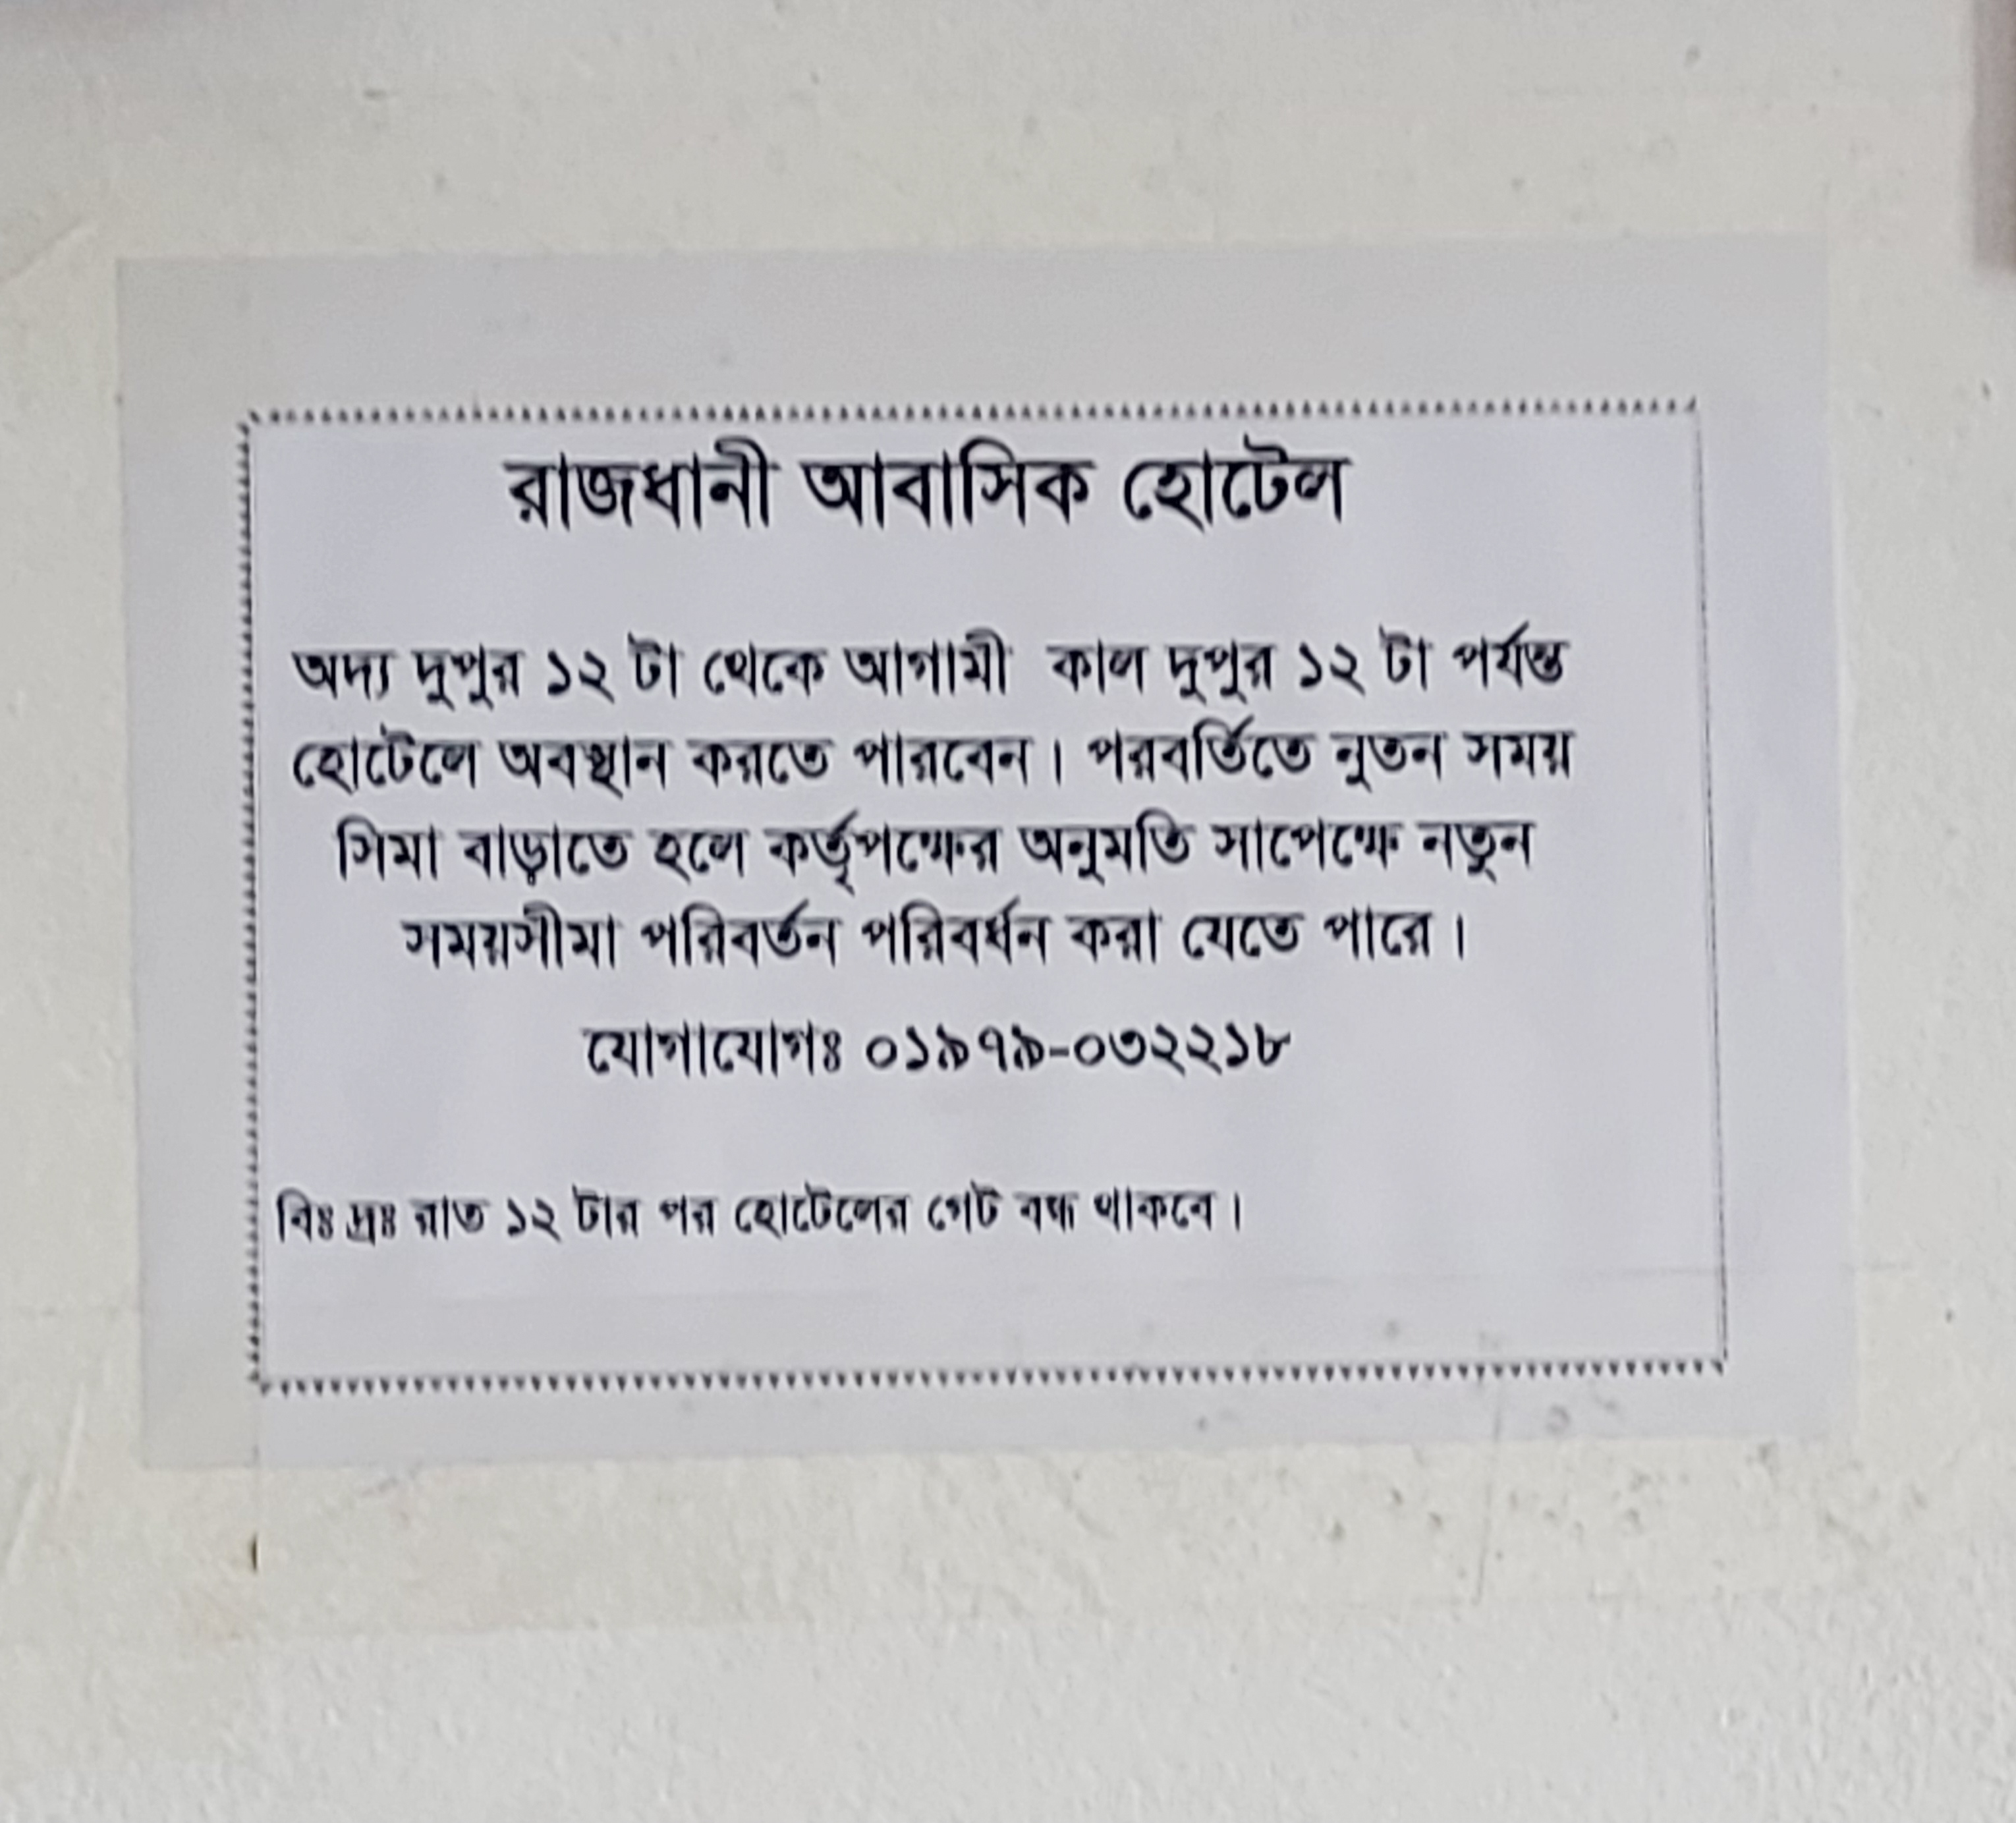 রাজধানী আবাসিক হোটেল
অদ্য দুপুর ১২ টা থেকে আগামী কাল দুপুর ১২ টা পর্যন্ত
হোটেলে অবস্থান করতে পারবেন। পরবর্তিতে নুতন সময়
সিমা বাড়াতে হলে কর্তৃপক্ষের অনুমতি সাপেক্ষে নতুন
সময়সীমা পরিবর্তন পরিবর্ধন করা যেতে পারে।
যোগাযোগঃ ০১৯৭৯-০৩২২১৮
বিঃ দ্রঃ রাত ১২ টার পর হোটেলের গেট বন্ধ থাকবে।